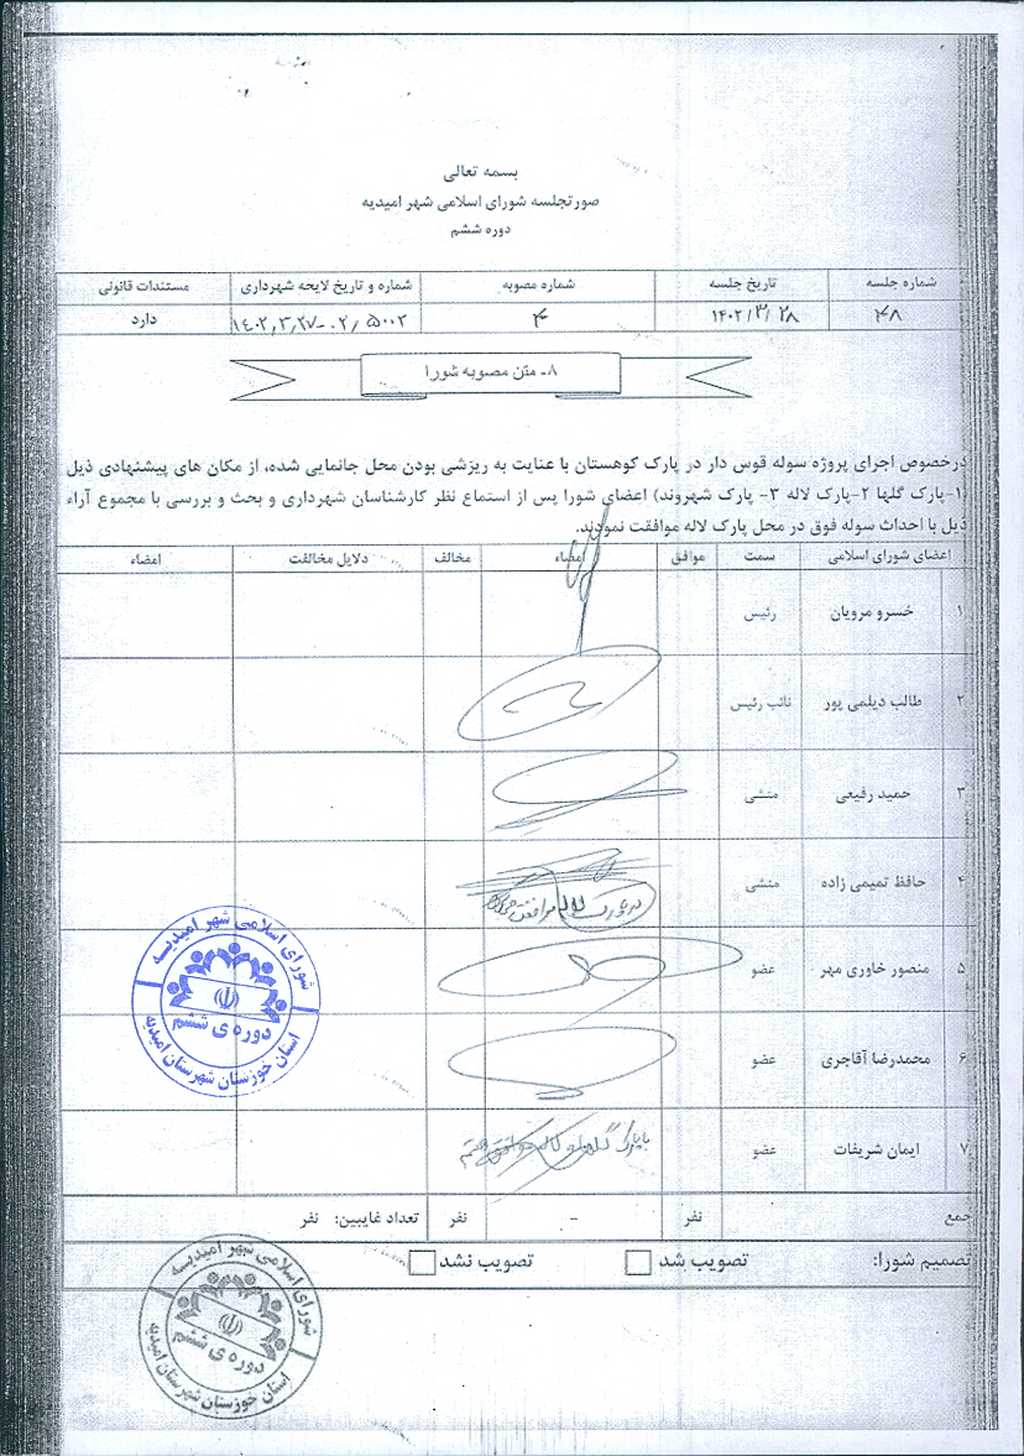 بسمه تعالی
صورتجلسه شورای اسلامی شهر امیدیه
دوره ششم
شماره جلسه تاریخ جلسه شماره مصوبه شماره و تاریخ لایحه شهرداری مستندات قانونی
۴۸ ۱۴۰۲/۳/۲۸ ۴ ۱۴۰۲,۳,۲۷-۰۲/۵۰۰۲ دارد
۸- متن مصوبه شورا
درخصوص اجرای پروژه سوله قوس دار در پارک کوهستان با عنایت به ریزشی بودن محل جانمایی شده، از مکان های پیشنهادی ذیل
(۱-پارک گلها ۲-پارک لاله ۳- پارک شهروند) اعضای شورا پس از استماع نظر کارشناسان شهرداری و بحث و بررسی با مجموع آراء
ذیل با احداث سوله فوق در محل پارک لاله موافقت نمودند.
اعضای شورای اسلامی سمت موافق امضاء مخالف دلایل مخالفت امضاء
۱ خسرو مرویان رئیس
۲ طالب دیلمی پور نائب رئیس
۳ حمید رفیعی منشی
۴ حافظ تمیمی زاده منشی
۵ منصور خاوری مهر عضو
۶ محمدرضا آقاجری عضو
۷ ایمان شریفات عضو
با پارک
جمع نفر - نفر تعداد غایبین: نفر
تصمیم شورا: تصویب شد تصویب نشد
شورای اسلامی شهر امیدیه
دوره ی ششم
استان خوزستان شهرستان امیدیه
شورای اسلامی شهر امیدیه
دوره ی ششم
استان خوزستان شهرستان امیدیه